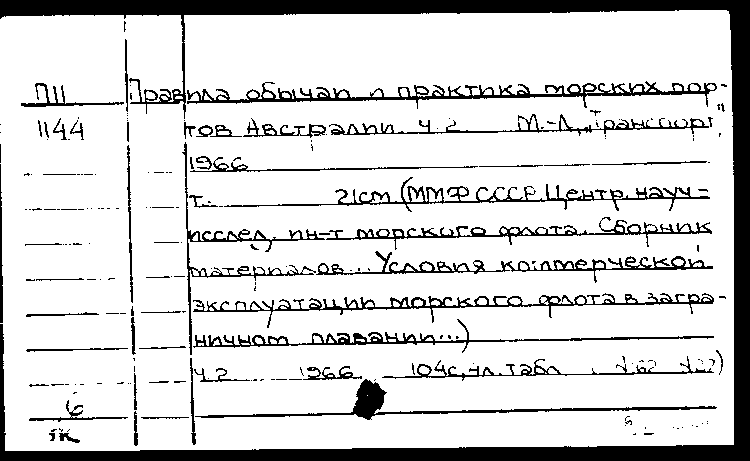 П11 Правила обычаи и практика морских пор-
1144 тов Австралии. Ч.2. М.-Л., „Транспорт",
1966
т. 21см (ММФ СССР. Центр. науч-
исслед. ин-т морского флота. Сборник
материалов... Условия коммерческой
эксплуатации морского флота в загра-
ничном плавании...)
Ч.2 1966 104с, ил. табл.
6